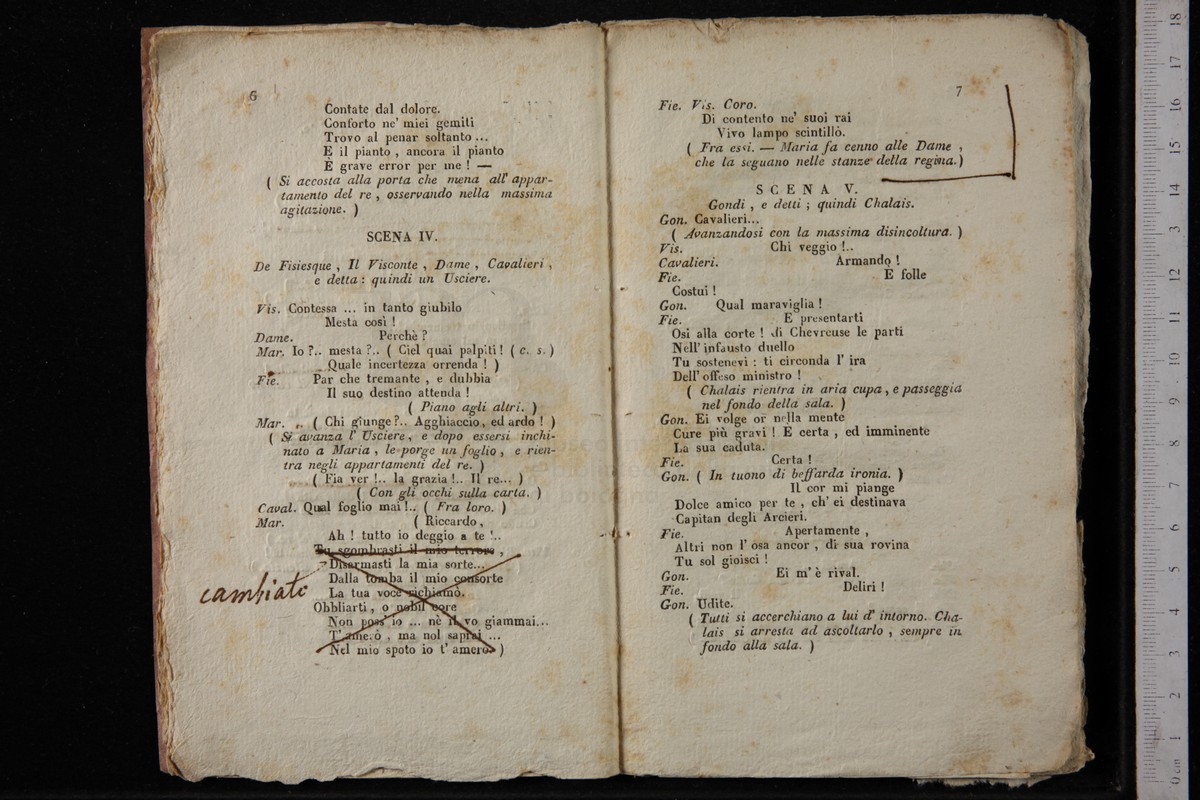 6
Contate dal dolore.
Conforto ne' miei gemiti
Trovo al penar soltanto ...
È il pianto , ancora il pianto
È grave error per me ! —
( Si accosta alla porta che mena all' appar-
tamento del re , osservando nella massima
agitazione. )
SCENA IV.
De Fisiesque , Il Visconte , Dame , Cavalieri ,
e detta : quindi un Usciere.
Vis. Contessa ... in tanto giubilo
Mesta così !
Dame. Perchè ?
Mar. Io ?.. mesta ?.. ( Ciel quai palpiti ! ( c. s. )
Quale incertezza orrenda ! )
Fie. Par che tremante , e dubbia
Il suo destino attenda !
( Piano agli altri. )
Mar. ,, ( Chi giunge ?.. Agghiaccio, ed ardo ! )
( Si avanza l' Usciere, e dopo essersi inchi-
nato a Maria , le porge un foglio , e rien-
tra negli appartamenti del re. )
( Fia ver !.. la grazia !.. Il re... )
( Con gli occhi sulla carta. )
Caval. Qual foglio mai !.. ( Fra loro. )
Mar. ( Riccardo ,
Ah ! tutto io deggio a te !..
Tu sgombrasti il mio terrore ,
Disarmasti la mia sorte...
Dalla tomba il mio consorte
cambiate La tua voce richiamò.
Obbliarti , o nobil core
Non poss' io ... nè il vo giammai...
T' amerò , ma nol saprai ...
Nel mio spoto io t' amerò. )
7
Fie. Vis. Coro.
Di contento ne' suoi rai
Vivo lampo scintillò.
( Fra essi. — Maria fa cenno alle Dame ,
che la seguano nelle stanze della regina.)
SCENA V.
Gondi , e detti ; quindi Chalais.
Gon. Cavalieri...
( Avanzandosi con la massima disincoltura. )
Vis. Chi veggio !..
Cavalieri. Armando !
Fie. È folle
Costui !
Gon. Qual maraviglia !
Fie. E presentarti
Osi alla corte ! di Chevreuse le parti
Nell' infausto duello
Tu sostenevi : ti circonda l' ira
Dell' offeso ministro !
( Chalais rientra in aria cupa, e passeggia
nel fondo della sala. )
Gon. Ei volge or nella mente
Cure più gravi ! È certa , ed imminente
La sua caduta.
Fie. Certa !
Gon. ( In tuono di beffarda ironia. )
Il cor mi piange
Dolce amico per te , ch' ei destinava
Capitan degli Arcieri.
Fie. Apertamente ,
Altri non l' osa ancor , di sua rovina
Tu sol gioisci !
Gon. Ei m' è rival.
Fie. Deliri !
Gon. Udite.
( Tutti si accerchiano a lui d' intorno. Cha-
lais si arresta ad ascoltarlo , sempre in
fondo alla sala. )